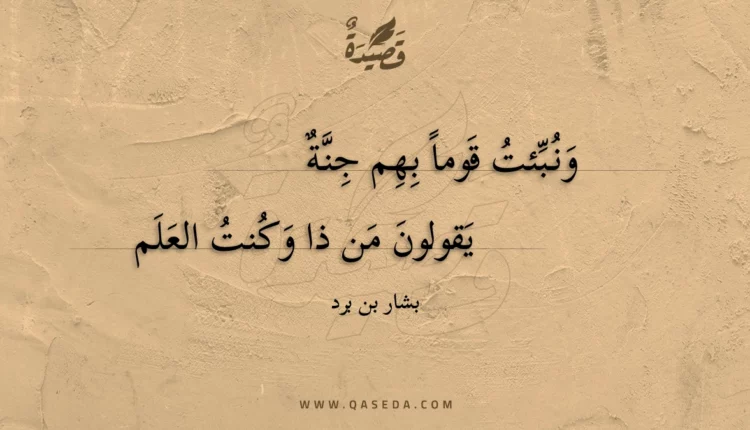 قَصِيدَةٌ
وَنُبِّئتُ قَوماً بِهِم جِنَّةٌ
يَقولونَ مَن ذا وَكُنتُ العَلَم
بشار بن برد
WWW.QASEDA.COM